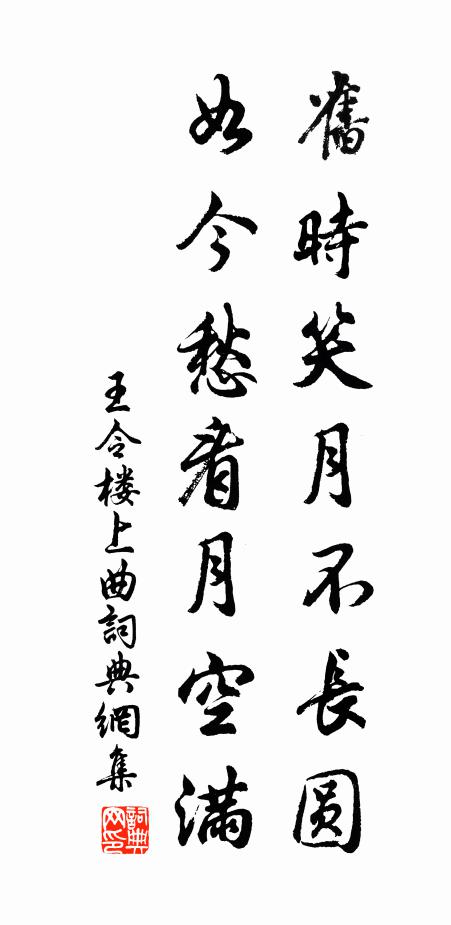 舊時笑月不長圆
如今愁看月空滿
王令楼上曲詞典網集
詞典网印